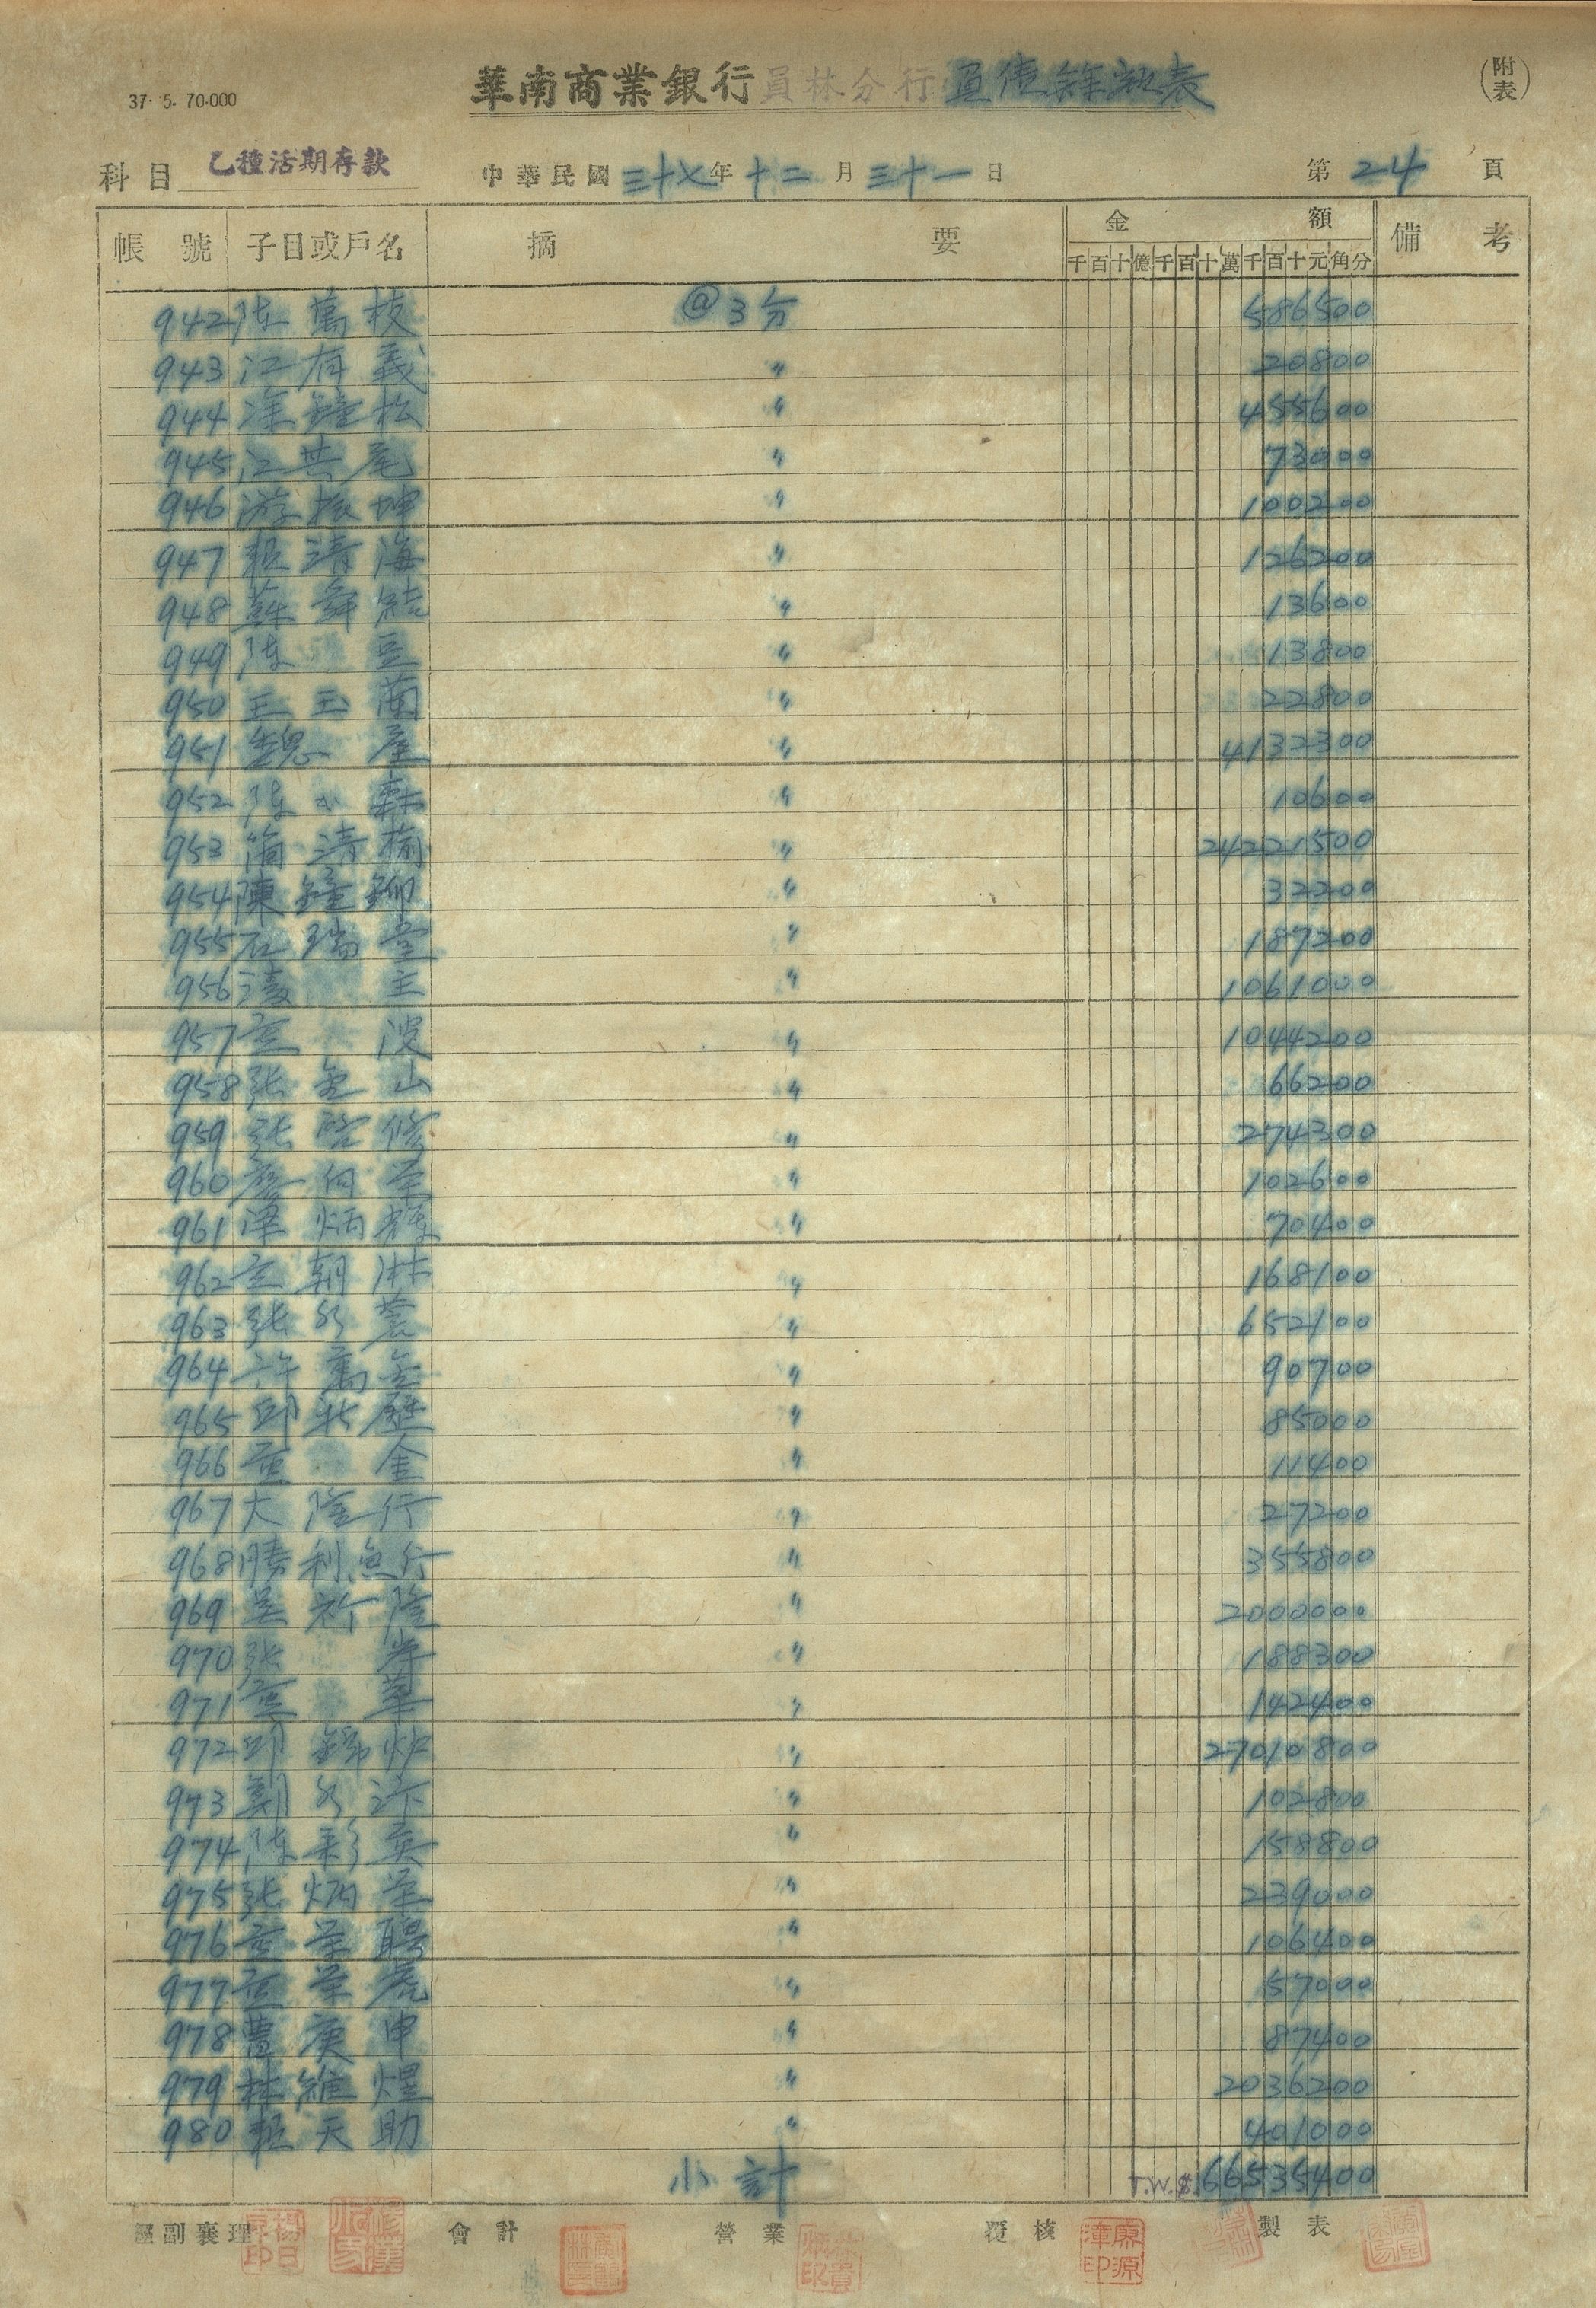 37. 5. 70.000
華南商業銀行員林分行負債餘額表
(附表)
科目 乙種活期存款 中華民國三十七年十二月三十一日 第24頁
帳號 子目或戶名 摘要 金額 備考
千百十億千百十萬千百十元角分
942 陳萬枝 @3分 586500
943 江有義 〃 20800
944 涂鐘松 〃 455600
945 江共尾 〃 73000
946 游振坤 〃 100200
947 賴清海 〃 126200
948 蘇舜結 〃 13600
949 陳豆 〃 13800
950 王玉蘭 〃 22800
951 魏屋 〃 4132300
952 陳小森 〃 10600
953 簡清楠 〃 24221500
954 陳鐘 〃 32200
955 石瑞堂 〃 187200
956 凌主 〃 1061000
957 波 〃 1044200
958 張金山 〃 66200
959 張啓修 〃 274300
960 詹向榮 〃 102600
961 炳輝 〃 70400
962 朝淋 〃 168100
963 張 〃 652100
964 許萬金 〃 90700
965 邱 〃 85000
966 金 〃 11400
967 大隆行 〃 27200
968 勝利魚行 〃 355800
969 吳新隆 〃 2000000
970 張 〃 188300
971 草 〃 142400
972 邱錦炉 〃 27010800
973 劉 〃 102800
974 陳彩英 〃 158800
975 張炳榮 〃 239000
976 榮聘 〃 106400
977 榮 〃 57000
978 曹庚申 〃 87400
979 林維煌 〃 2036200
980 賴天助 〃 401000
小計 T.W.$ 66535400
經副襄理 會計 營業 覆核 製表